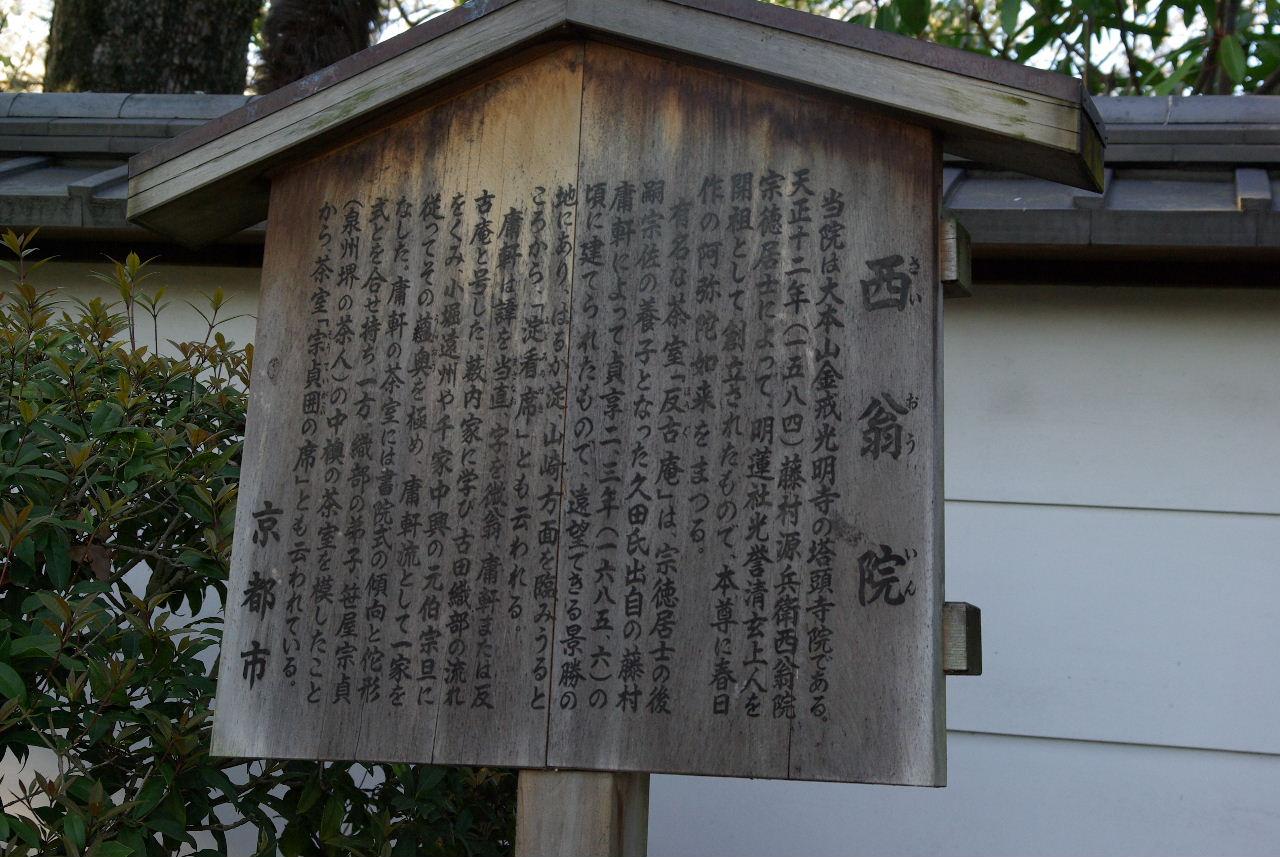 西翁院
さいおういん
当院は大本山金戒光明寺の塔頭寺院である。
天正十二年(一五八四)藤村源兵衛西翁院
宗徳居士によって、明蓮社光誉清玄上人を
開祖として創立されたもので、本尊に春日
作の阿弥陀如来をまつる。
有名な茶室「反古庵」は、宗徳居士の後
嗣宗佐の養子となった久田氏出自の藤村
庸軒によって貞享二、三年(一六八五、六)の
頃に建てられたもので、遠望できる景勝の
地にあり、はるか淀、山崎方面を臨みうると
ころから、「淀看席」とも云われる。
庸軒は諱を当直、字を微翁、庸軒または反
古庵と号した。藪内家に学び、古田織部の流れ
をくみ、小堀遠州や千家中興の元伯宗旦に
従ってその蘊奥を極め、庸軒流として一家を
なした。庸軒の茶室には書院式の傾向と佗形
式とを合せ持ち、一方、織部の弟子、笹屋宗貞
(泉州堺の茶人)の中襖の茶室を模したこと
から茶室「宗貞囲の席」とも云われている。
京都市